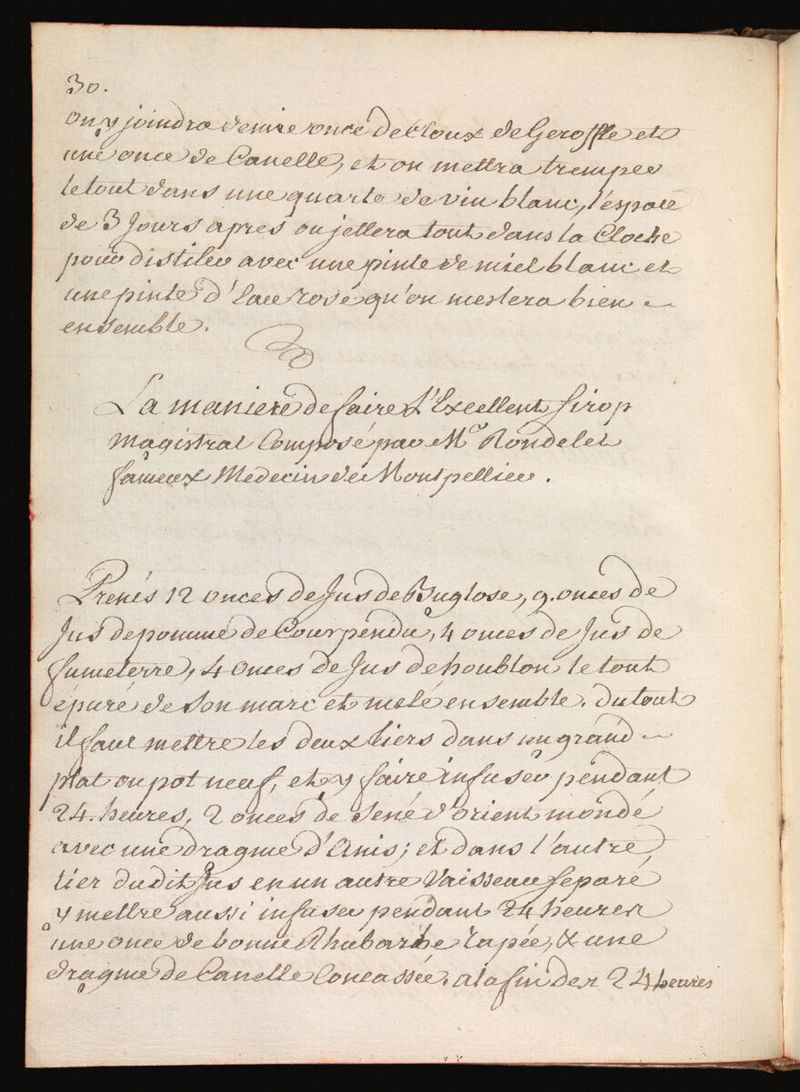 30.
on y joindra demie once de Cloux de Geroffle et
une once de Canelle, et on mettra tremper
le tout dans une quarte de vin blanc, l'espace
de 3 Jours apres on jettera tout dans la Cloche
pour distiler avec une pinte de miel blanc et
une pinte d'Eau rose qu'on meslera bien
ensemble.
La maniere de faire L'Excellent Sirop
magistral Composé par Mr. Rondelet
fameux Medecin de Montpellier.
Prenés 12 onces de Jus de Buglose, 9. onces de
Jus de pomme de Courpendu, 4 onces de Jus de
fumeterre, 4 onces de Jus de houblon le tout
épuré de son marc et melé ensemble. Du tout
il faut mettre les deux tiers dans un grand
plat ou pot neuf, et y faire infuser pendant
24. heures, 2 onces de Sené d'orient mondé
avec une dragme d'Anis; et dans l'autre
tier dudit Jus en un autre Vaisseau separé
y mettre aussi infuser pendant 24 heures
une once de bonne Rhubarbe rapée, & une
dragme de Canelle Concassée. a la fin des 24 heures